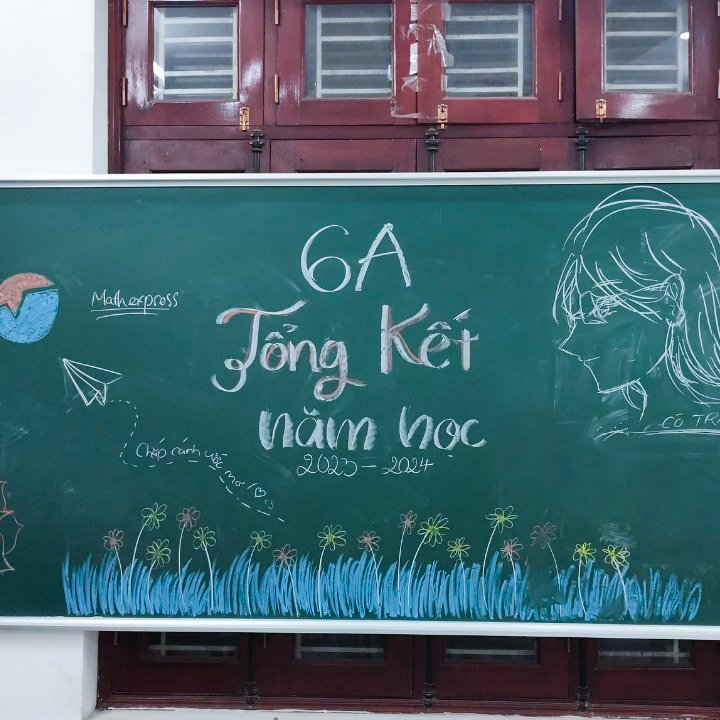 6A
Mathexpress
Tổng Kết
năm học
2023-2024
Chắp cánh ước
mơ
CÔ TR